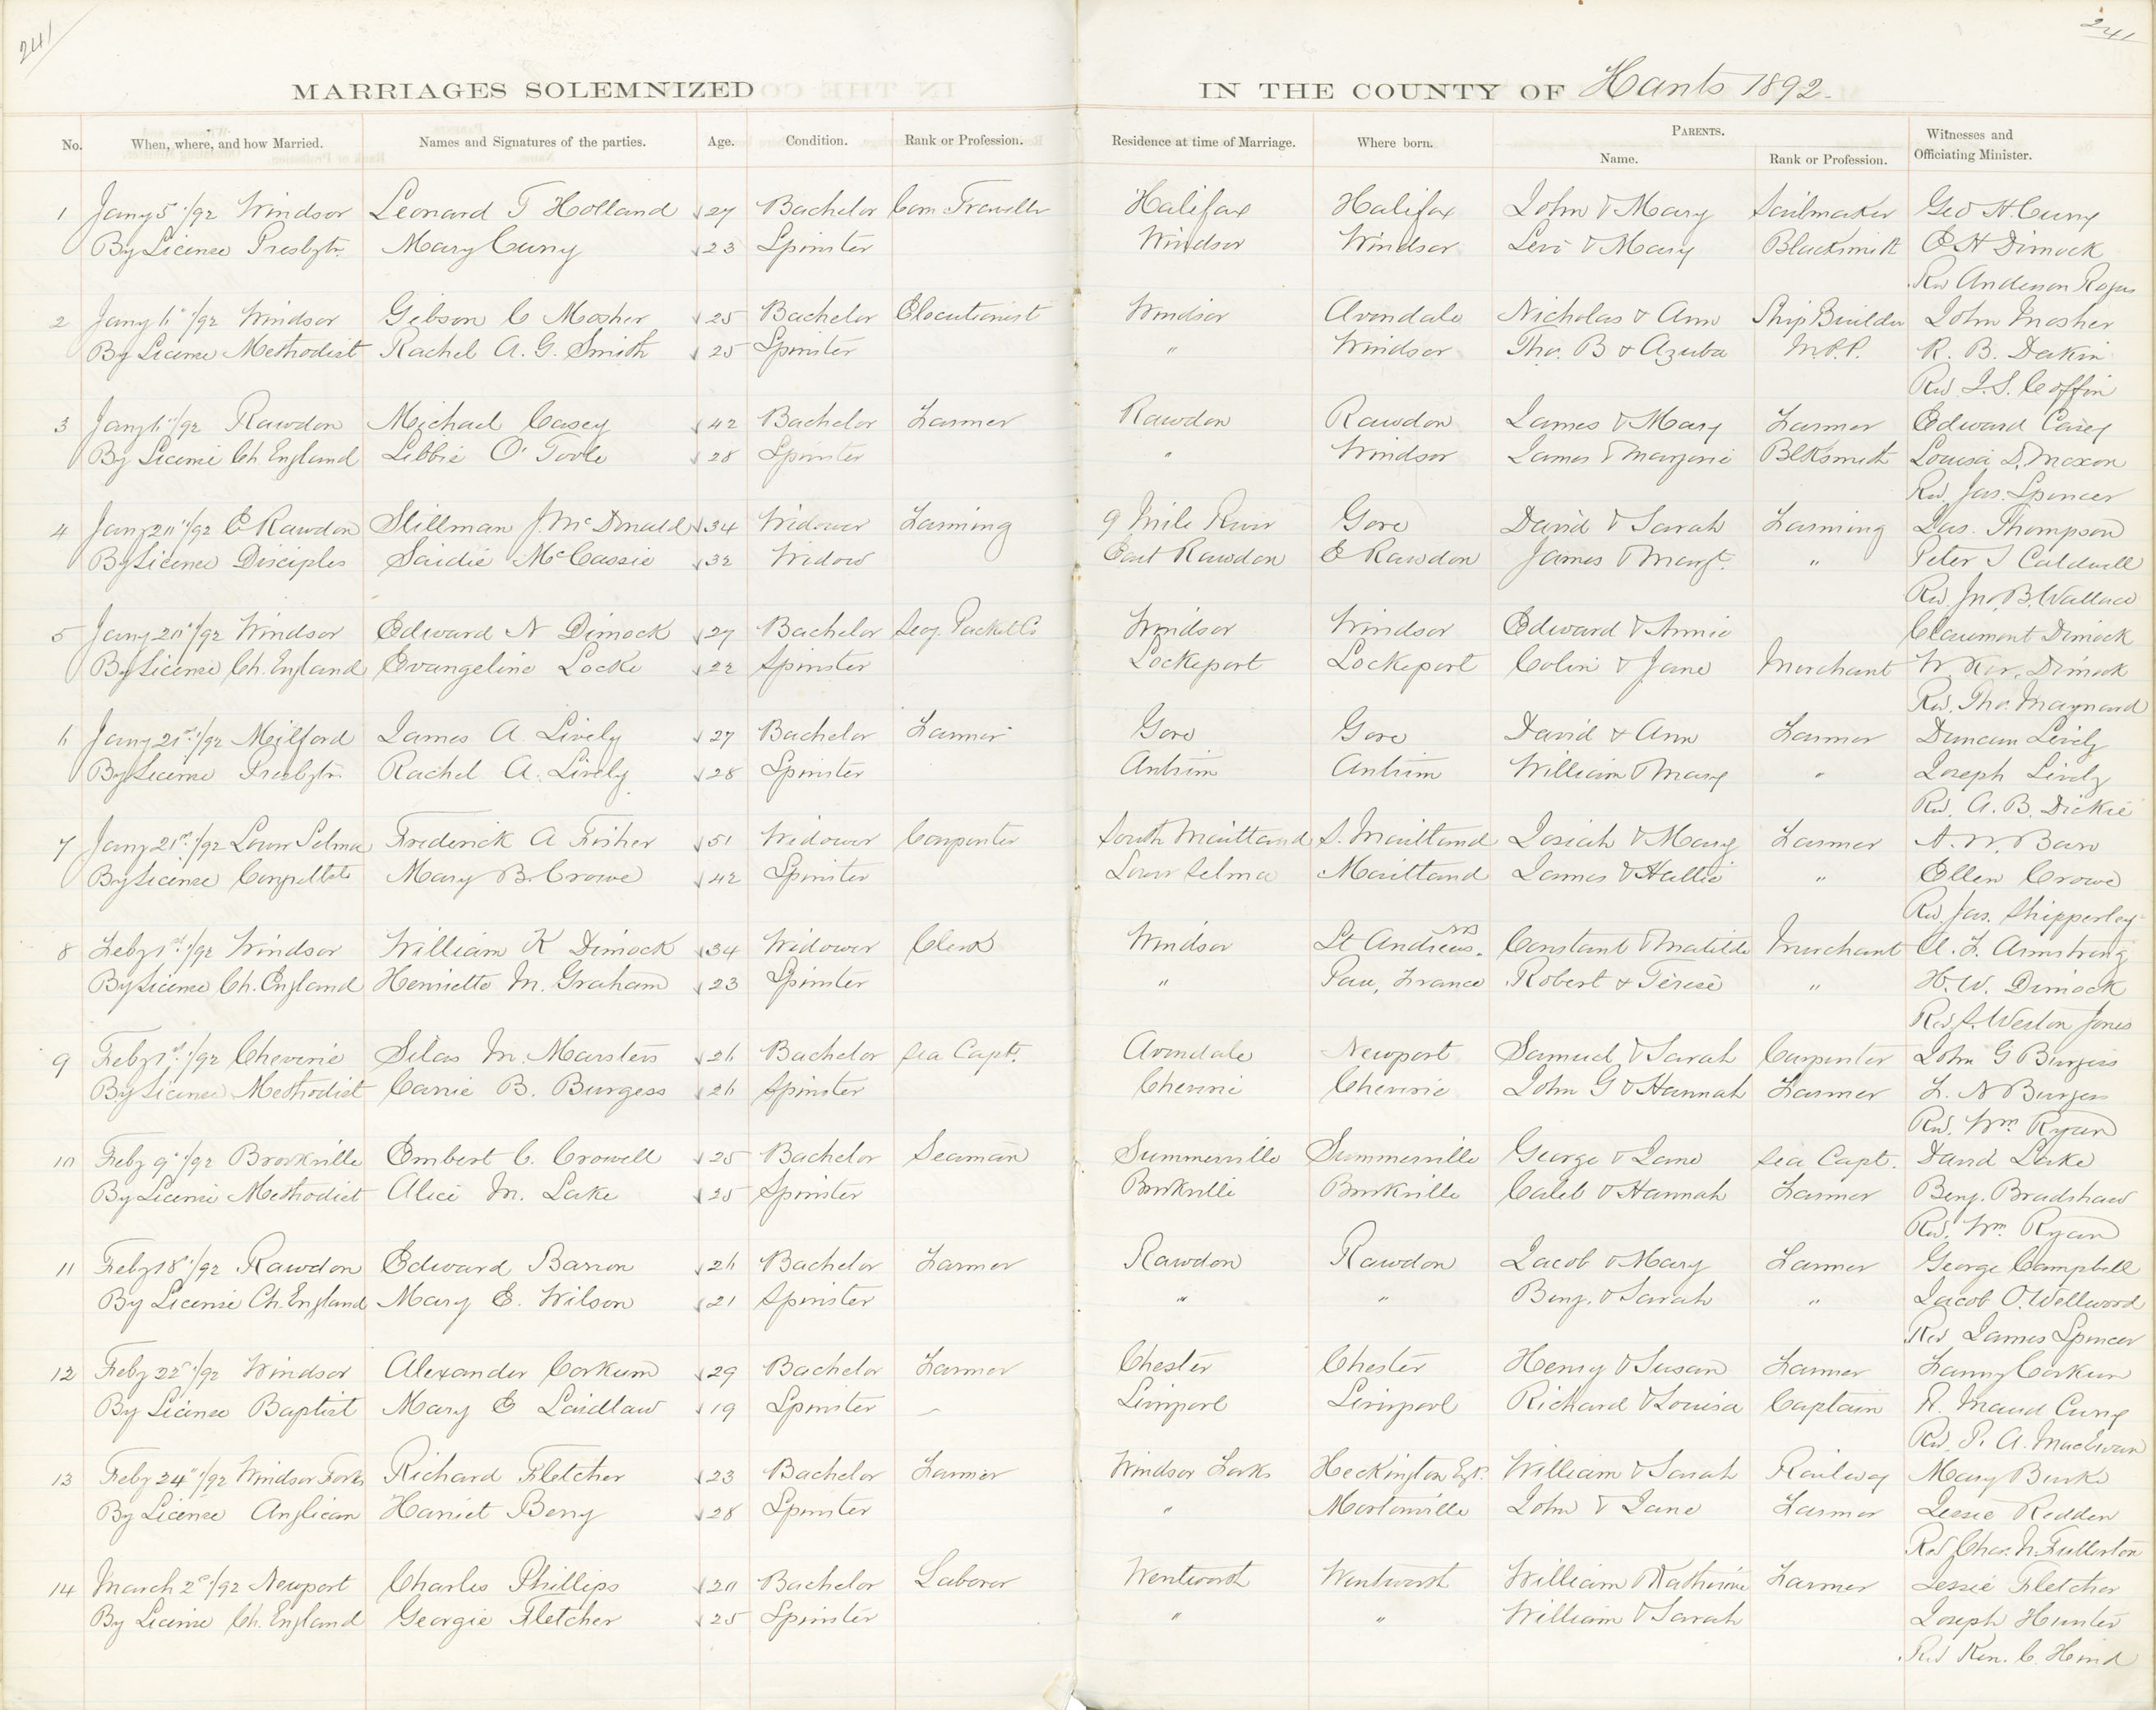 241
241
MARRIAGES SOLEMNIZED IN THE COUNTY OF Hants 1892.
No. When, where, and how Married. Names and Signatures of the parties. Age. Condition. Rank or Profession. Residence at time of Marriage. Where born. PARENTS. Witnesses and
Name. Rank or Profession. Officiating Minister.
1 Jany 5"/92 Windsor Leonard T Holland 27 Bachelor Com Traveller Halifax Halifax John & Mary Sailmaker Geo H. Curry
By License Presbytn. Mary Curry 23 Spinster Windsor Windsor Levi & Mary Blacksmith E H Dimock
Rev Anderson Rogers
2 Jany 6"/92 Windsor Gibson C Mosher 25 Bachelor Elocutionist Windsor Avondale Nicholas & Ann Ship Builder John Mosher
By License Methodist Rachel A. G. Smith 25 Spinster " Windsor Tho. B & Azuba M.P.P. R. B. Dakin
Rev J. S. Coffin
3 Jany 6"/92 Rawdon Michael Casey 42 Bachelor Farmer Rawdon Rawdon James & Mary Farmer Edward Casey
By License Ch. England Libbie O'Toole 28 Spinster " Windsor James & Marjorie Blksmith Louisa S. Moxon
Rev. Jas. Spencer
4 Jany 20"/92 E Rawdon Stillman J McDonald 34 Widower Farming 9 Mile River Gore David & Sarah Farming Jas. Thompson
By License Disciples Saidie McCassie 32 Widow East Rawdon E Rawdon James & Margt. " Peter S Caldwell
Rev. Jno. B. Wallace
5 Jany 20"/92 Windsor Edward N Dimock 27 Bachelor Secy. Packet Co Windsor Windsor Edward & Annie Claremont Dimock
By License Ch. England Evangeline Locke 22 Spinster Lockeport Lockeport Colin & Jane Merchant W. Ker. Dimock
Rev. Tho. Maynard
6 Jany 21st/92 Milford James A. Lively 27 Bachelor Farmer Gore Gore David & Ann Farmer Duncan Lively
By License Presbytn. Rachel A. Lively 28 Spinster Antrim Antrim William & Mary " Joseph Lively
Rev. A. B. Dickie
7 Jany 21st/92 Lower Selma Frederick A Fisher 51 Widower Carpenter South Maitland S. Maitland Josiah & Mary Farmer
By License Mary B. Crowe 42 Spinster Lower Selma Maitland James & Hallie " Ellen Crowe
Rev. Jas. Shipperley
8 Feby 1st/92 Windsor William K Dimock 34 Widower Clerk Windsor St Andrews. NB Constant & Matilda Merchant A. F. Armstrong
By License Ch. England Henrietta M. Graham 23 Spinster " Pau, France Robert & Terese " H. W. Dimock
Rev. S. Weston Jones
9 Feby 1st/92 Cheverie Silas M. Marsters 26 Bachelor Sea Capt. Avondale Newport Samuel & Sarah Carpenter John G Burgess
By License Methodist Carrie B. Burgess 26 Spinster Cheverie Cheverie John G & Hannah Farmer F. N Burgess
Rev. Wm Ryan
10 Feby 9"/92 Brookville Embert C. Crowell 25 Bachelor Seaman Summerville Summerville George & Jane Sea Capt. David Lake
By License Methodist Alice M. Lake 25 Spinster Brookville Brookville Caleb & Hannah Farmer Benj. Bradshaw
Rev. Wm. Ryan
11 Feby 18"/92 Rawdon Edward Barron 26 Bachelor Farmer Rawdon Rawdon Jacob & Mary Farmer George Campbell
By License Ch. England Mary E. Wilson 21 Spinster " " Benj. & Sarah " Jacob O. Wellwood
Rev James Spencer
12 Feby 22"/92 Windsor Alexander Corkum 29 Bachelor Farmer Chester Chester Henry & Susan Farmer Fanny Corkum
By License Baptist Mary E Laidlaw 19 Spinster Liverpool Liverpool Richard & Louisa Captain A. Maud Curry
Rev. P. A. MacEwan
13 Feby 24"/92 Windsor Forks Richard Fletcher 23 Bachelor Farmer Windsor Forks Heckington Eng. William & Sarah Railway Mary Burke
By License Anglican Harriet Berry 28 Spinster " Martinville John & Jane Farmer Jessie Redden
Rev. Chas. N. Fullerton
14 March 2d/92 Newport Charles Phillips 20 Bachelor Laborer Wentworth Wentworth William & Katherine Farmer Jessie Fletcher
By License Ch. England Georgie Fletcher 25 Spinster " " William & Sarah Joseph Hunter
Rev Ken. C. Hind